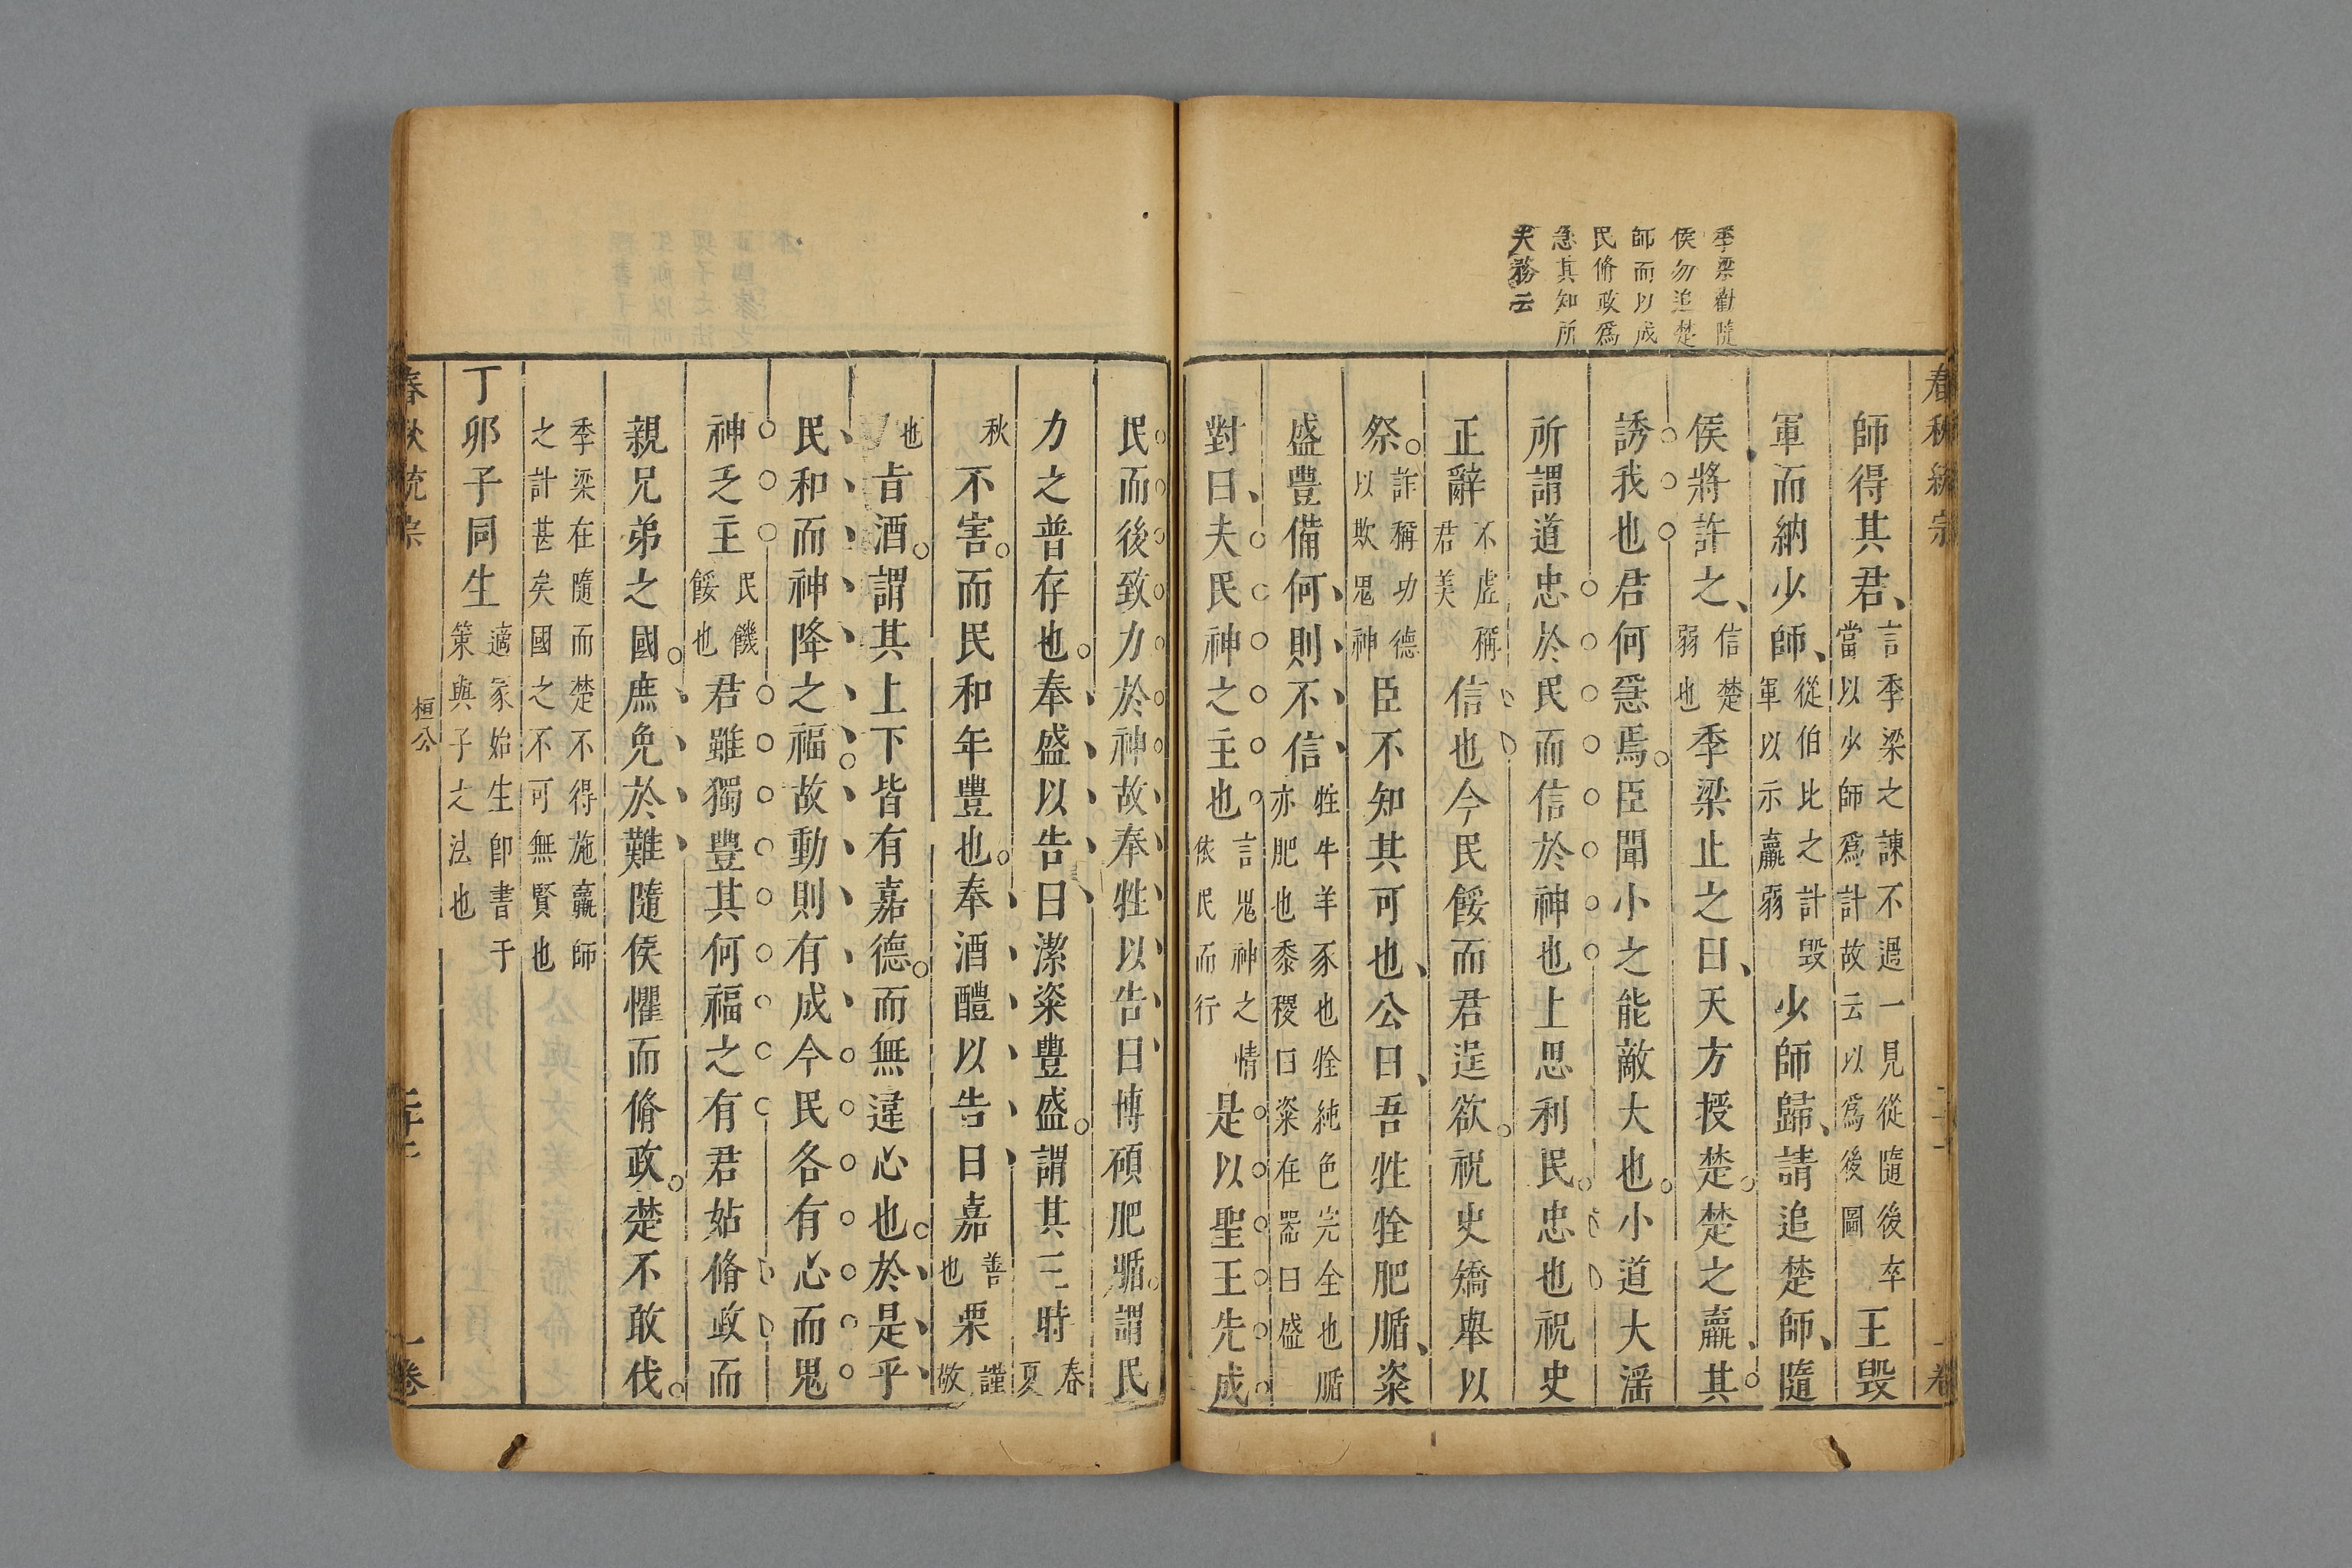 季梁勸隨
侯勿追楚
師而以成
民脩政爲
急其知所
夫務云
師得其君言季梁之諫不過一見從隨後卒當以少師爲計故云以爲後圖王毀
軍而納少師從伯比之計軍以示羸弱毀少師歸請追楚師隨
侯將許之信楚弱也季梁止之曰天方授楚楚之羸其
誘我也君何急焉臣聞小之能敵大也小道大滛
所謂道忠於民而信於神也上思利民忠也祝史
正辭不虛稱君美信也今民餒而君逞欲祝史矯舉以
祭詐稱功德以欺鬼神臣不知其可也公曰吾牲牷肥腯粢
盛豐備何則不信牲牛羊豕也牷純色完全也腯亦肥也黍稷曰粢在器曰盛
對曰夫民神之主也言鬼神之情依民而行是以聖王先成
民而後致力於神故奉牲以告曰博碩肥腯謂民
力之普存也奉盛以告曰潔粢豐盛謂其三時春夏
秋不害而民和年豐也奉酒醴以告曰嘉善也栗謹敬
也旨酒謂其上下皆有嘉德而無違心也於是乎
民和而神降之福故動則有成今民各有心而鬼
神乏主民饑餒也君雖獨豐其何福之有君姑脩政而
親兄弟之國庶免於難隨侯懼而脩政楚不敢伐
季梁在隨而楚不得施羸師之計甚矣國之不可無賢也
丁卯子同生適冢始生即書于策與子之法也
桓公